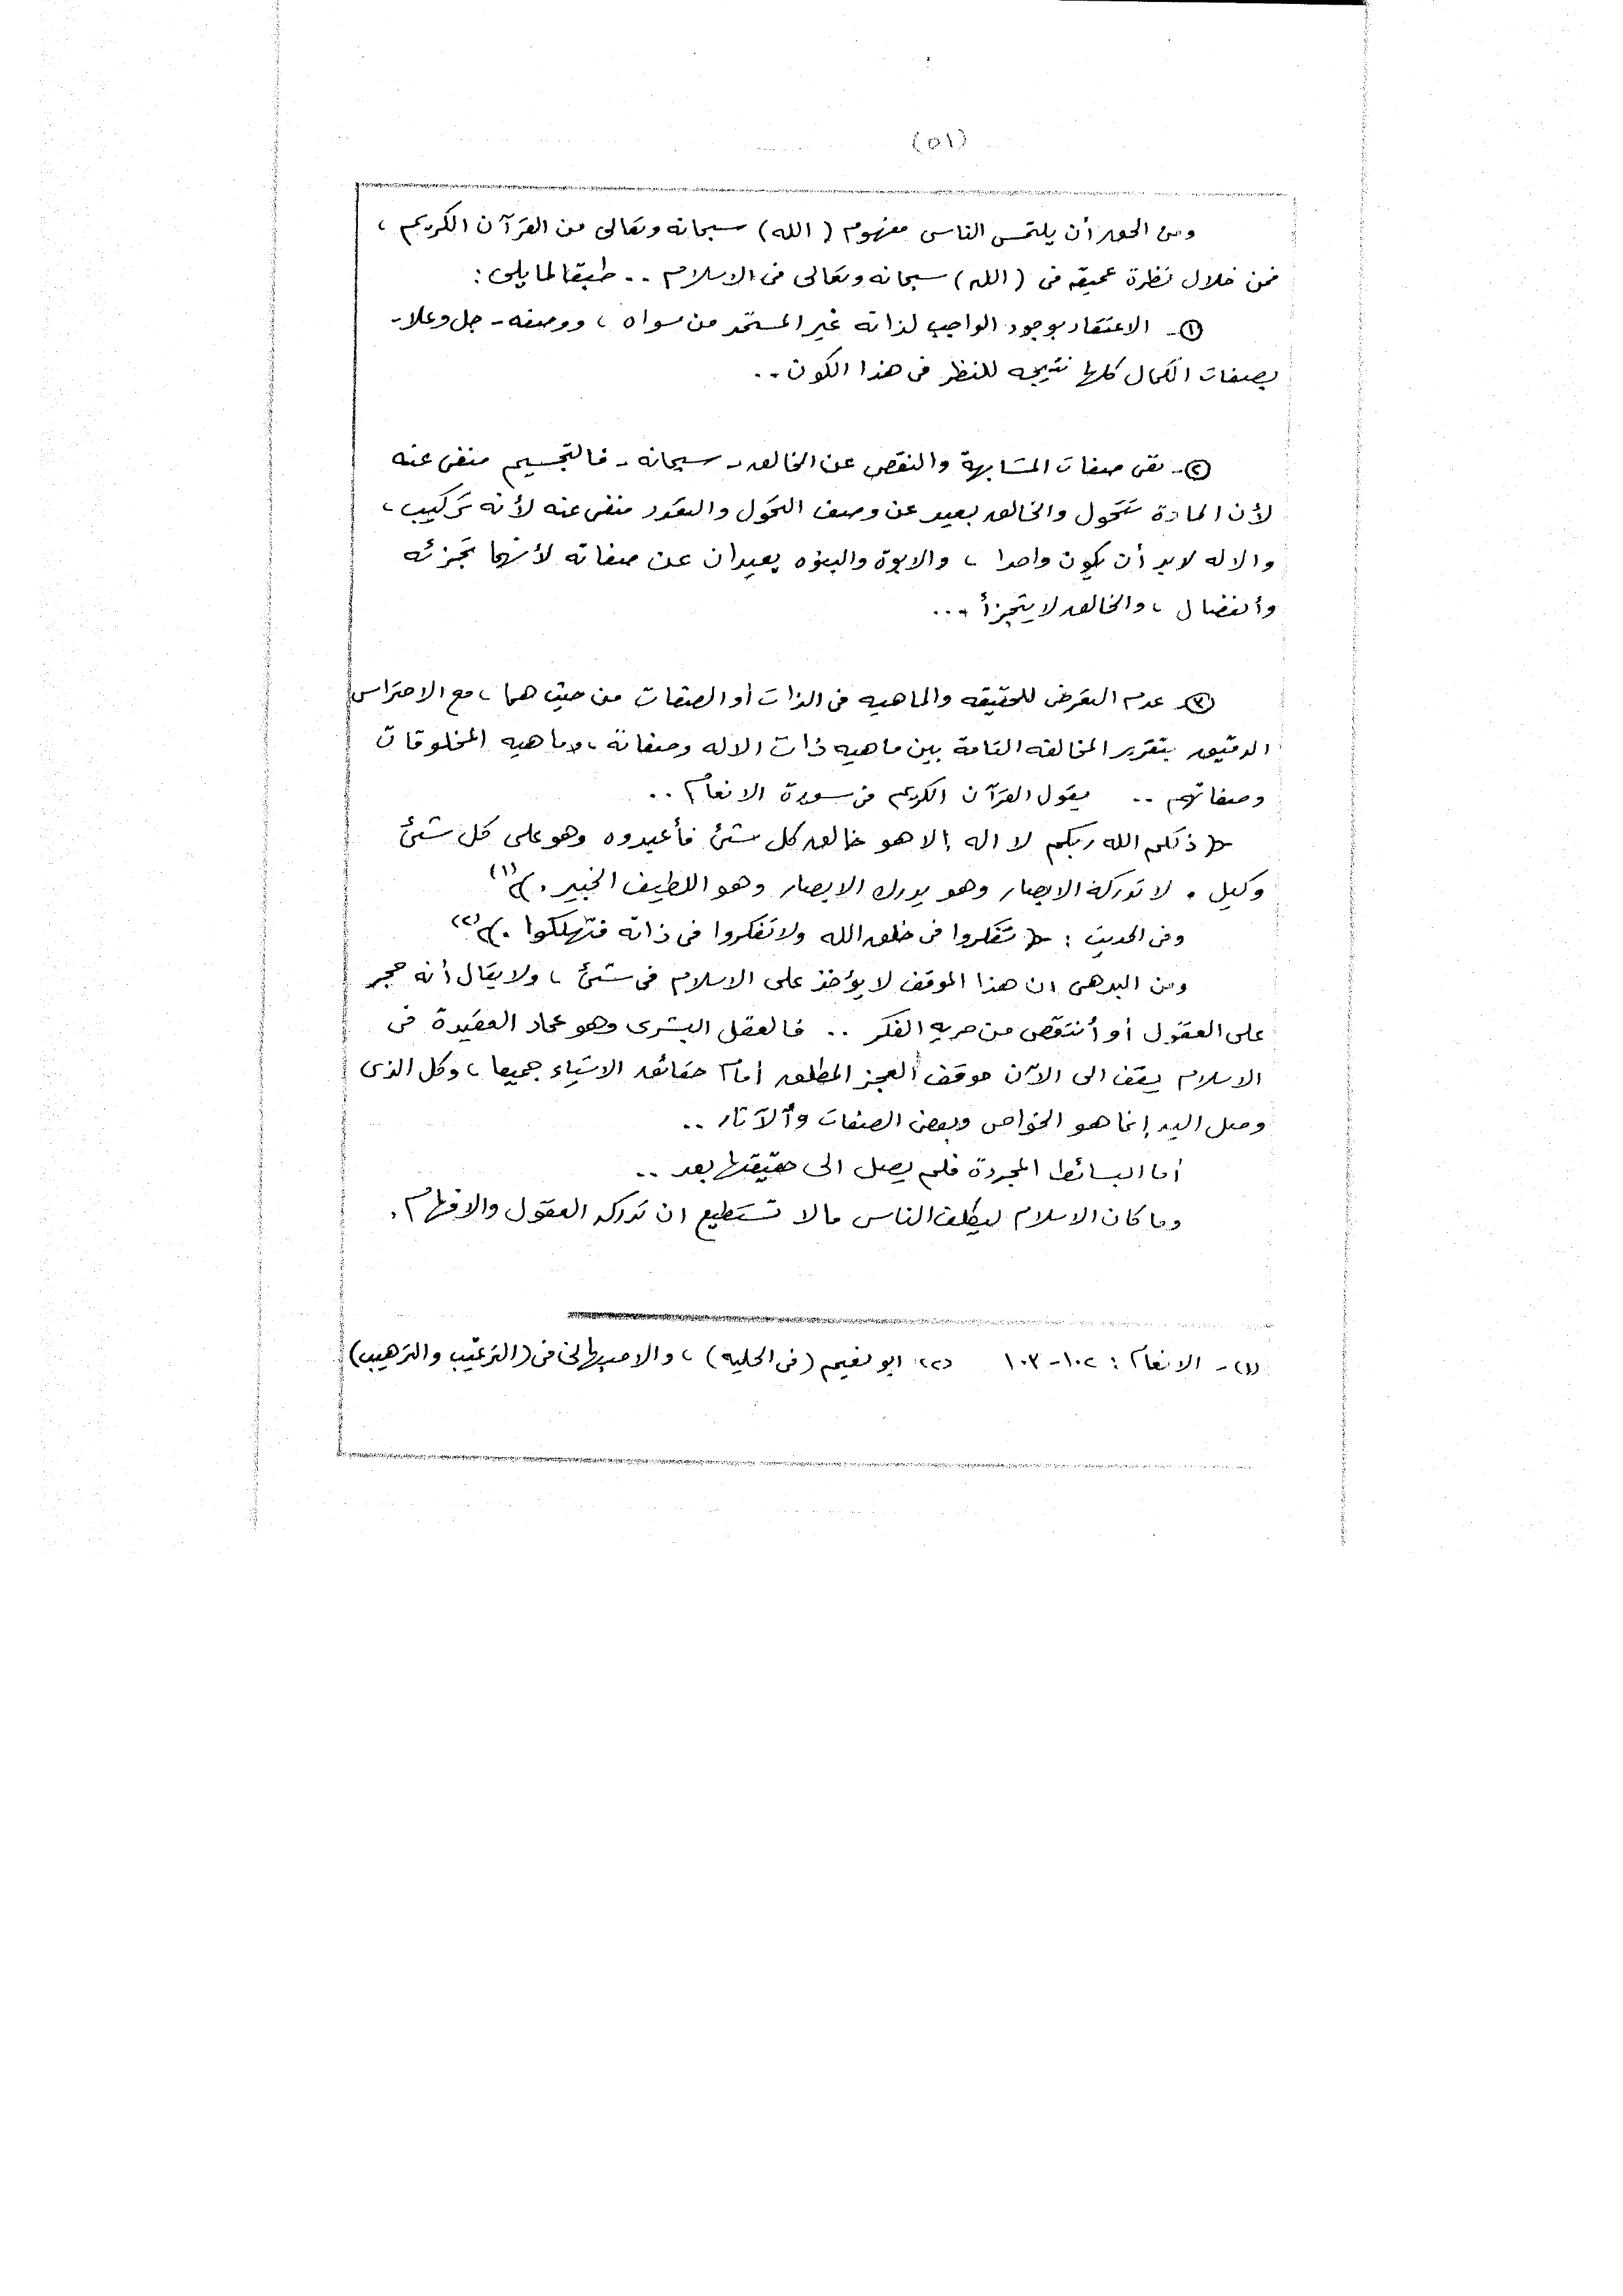 (٥١)
ومن الحق أن يلتمس الناس مفهوم (الله) سبحانه وتعالى من القرآن الكريم ،
فمن خلال نظرة عميقه فى (الله) سبحانه وتعالى فى الاسلام .. طبقا لما يلى :
(١)- الاعتقاد بوجود الواجب لذاته غير المستمد من سواه ، ووصفه - جل وعلا -
بصفات الكمال كلها نتيجه للنظر فى هذا الكون ..
(٢)- نفى صفات المشابهة والنقص عن الخالق - سبحانه - فالتجسيم منفى عنه
لأن المادة تتحول والخالق بعيد عن وصف التحول والتعدد منفى عنه لأنه تركيب ،
والاله لابد أن يكون واحدا ، والابوة والبنوه بعيدان عن صفاته لأنهما تجزئه
وأنفصال ، والخالق لا يتجزأ ...
(٣)- عدم التعرض للحقيقه والماهيه فى الذات أو الصفات من حيث هما ، مع الاحتراس
الدقيق بتقرير المخالفه التامة بين ماهيه ذات الاله وصفاته ، وماهيه المخلوقات
وصفاتهم .. يقول القرآن الكريم فى سورة الانعام ..
﴿ ذلكم الله ربكم لا اله إلا هو خالق كل شئ فأعبدوه وهو على كل شئ
وكيل . لا تدركه الابصار وهو يدرك الابصار وهو اللطيف الخبير . ﴾ (١)
وفى الحديث : ﴿ تفكروا فى خلق الله ولا تفكروا فى ذاته فتهلكوا . ﴾ (٢)
ومن البدهى ان هذا الموقف لا يؤخذ على الاسلام فى شئ ، ولا يقال أنه حجر
على العقول أو أنتقص من حريه الفكر .. فالعقل البشرى وهو عماد العقيدة فى
الاسلام يقف الى الآن موقف العجز المطلق أمام حقائق الاشياء جميعا ، وكل الذى
وصل اليه إنما هو الخواص وبعض الصفات والآثار ..
أما البسائط المجردة فلم يصل الى حقيقتها بعد ..
وما كان الاسلام ليكلف الناس مالا تستطيع ان تدركه العقول والافهام .
(١)- الانعام : ١٠٢ - ١٠٣ (٢) ابو نعيم (فى الحليه) ، والاصبهانى فى (الترغيب والترهيب)